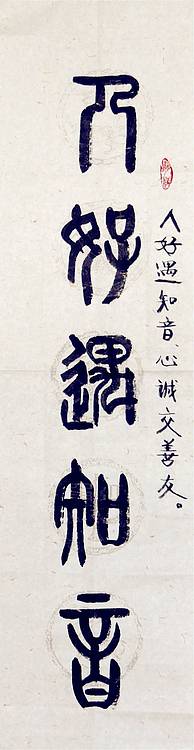 人好遇知音、心诚交善友。
人好遇知音